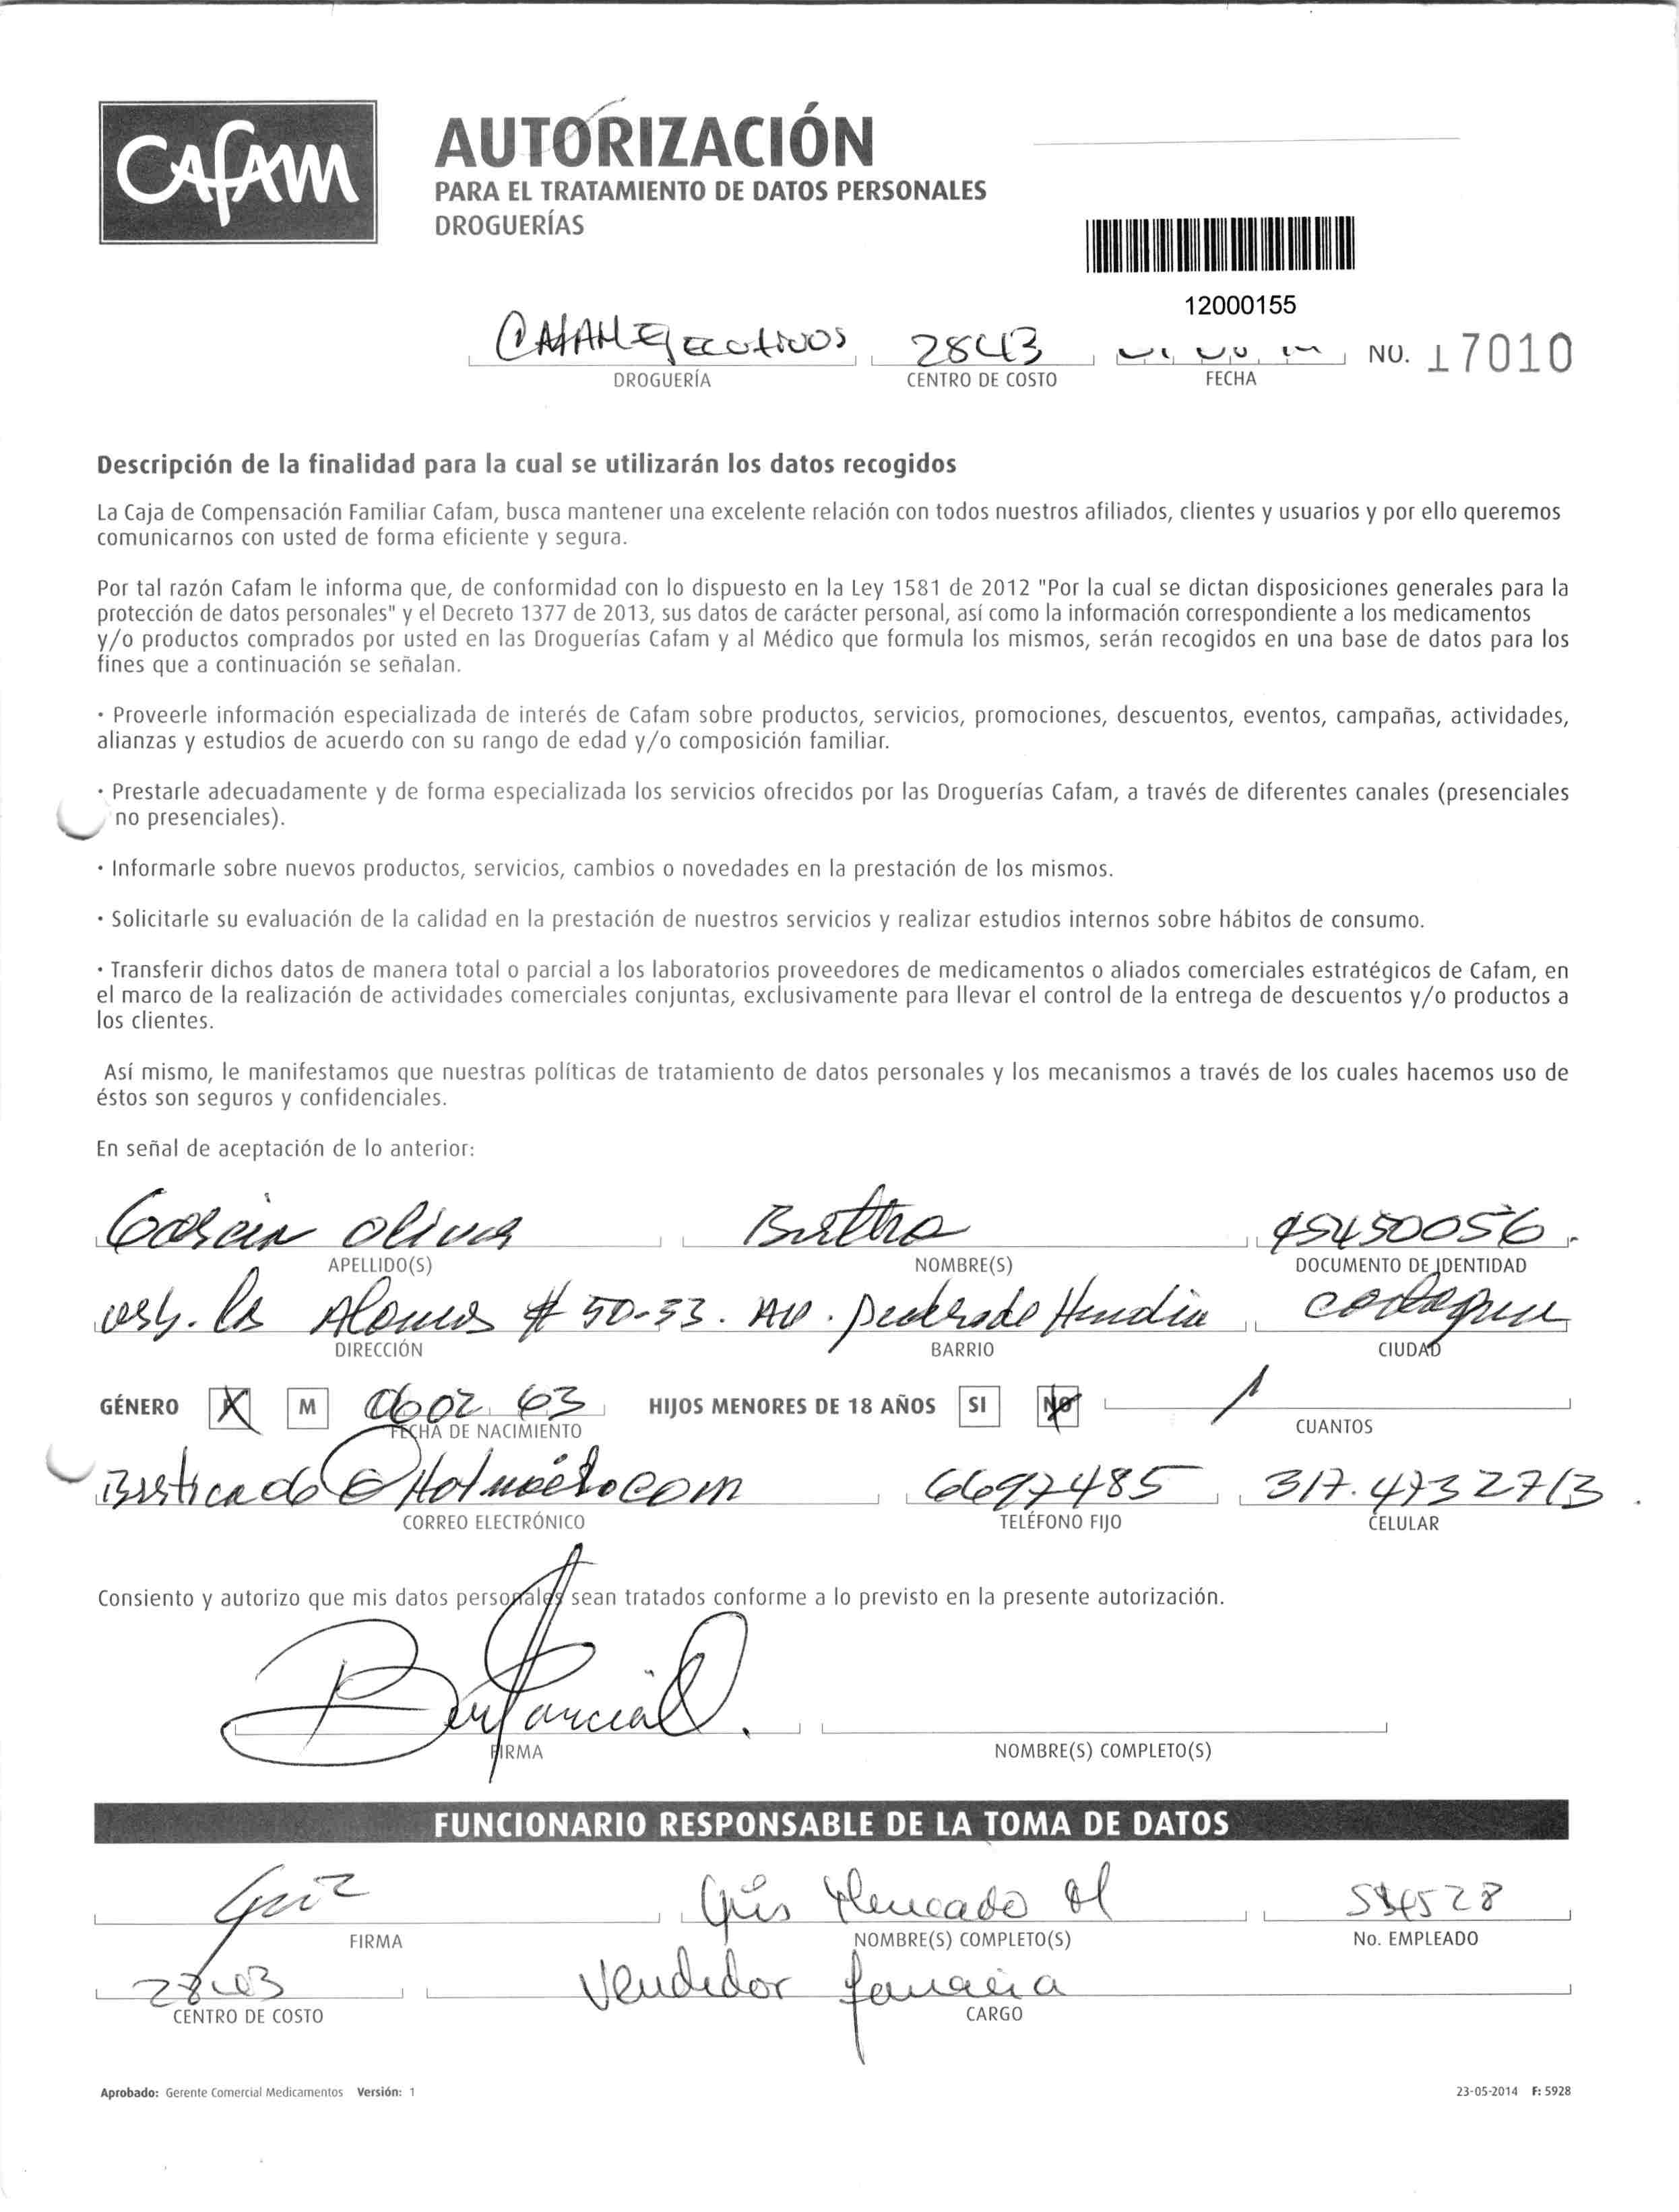 CAFAM
AUTORIZACIÓN
PARA EL TRATAMIENTO DE DATOS PERSONALES
DROGUERÍAS
12000155
CAFAM Ejecutivos 28403 NO. 17010
DROGUERÍA CENTRO DE COSTO FECHA
Descripción de la finalidad para la cual se utilizarán los datos recogidos
La Caja de Compensación Familiar Cafam, busca mantener una excelente relación con todos nuestros afiliados, clientes y usuarios y por ello queremos
comunicarnos con usted de forma eficiente y segura.
Por tal razón Cafam le informa que, de conformidad con lo dispuesto en la Ley 1581 de 2012 "Por la cual se dictan disposiciones generales para la
protección de datos personales" y el Decreto 1377 de 2013, sus datos de carácter personal, así como la información correspondiente a los medicamentos
y/o productos comprados por usted en las Droguerías Cafam y al Médico que formula los mismos, serán recogidos en una base de datos para los
fines que a continuación se señalan.
· Proveerle información especializada de interés de Cafam sobre productos, servicios, promociones, descuentos, eventos, campañas, actividades,
alianzas y estudios de acuerdo con su rango de edad y/o composición familiar.
· Prestarle adecuadamente y de forma especializada los servicios ofrecidos por las Droguerías Cafam, a través de diferentes canales (presenciales
no presenciales).
· Informarle sobre nuevos productos, servicios, cambios o novedades en la prestación de los mismos.
· Solicitarle su evaluación de la calidad en la prestación de nuestros servicios y realizar estudios internos sobre hábitos de consumo.
· Transferir dichos datos de manera total o parcial a los laboratorios proveedores de medicamentos o aliados comerciales estratégicos de Cafam, en
el marco de la realización de actividades comerciales conjuntas, exclusivamente para llevar el control de la entrega de descuentos y/o productos a
los clientes.
Así mismo, le manifestamos que nuestras políticas de tratamiento de datos personales y los mecanismos a través de los cuales hacemos uso de
éstos son seguros y confidenciales.
En señal de aceptación de lo anterior:
Garcia Oliva Bertha 45450056
APELLIDO(S) NOMBRE(S) DOCUMENTO DE IDENTIDAD
# 50-53. AV. Pedro de Heredia Cartagena
DIRECCIÓN BARRIO CIUDAD
GÉNERO X M 06 02 63 HIJOS MENORES DE 18 AÑOS SI NO /
FECHA DE NACIMIENTO CUANTOS
6697485 317.4732713
CORREO ELECTRÓNICO TELÉFONO FIJO CELULAR
Consiento y autorizo que mis datos personales sean tratados conforme a lo previsto en la presente autorización.
FIRMA NOMBRE(S) COMPLETO(S)
FUNCIONARIO RESPONSABLE DE LA TOMA DE DATOS
Mercado
FIRMA NOMBRE(S) COMPLETO(S) No. EMPLEADO
28403 Vendedor farmacia
CENTRO DE COSTO CARGO
Aprobado: Gerente Comercial Medicamentos Versión: 1 23-05-2014 F: 5928